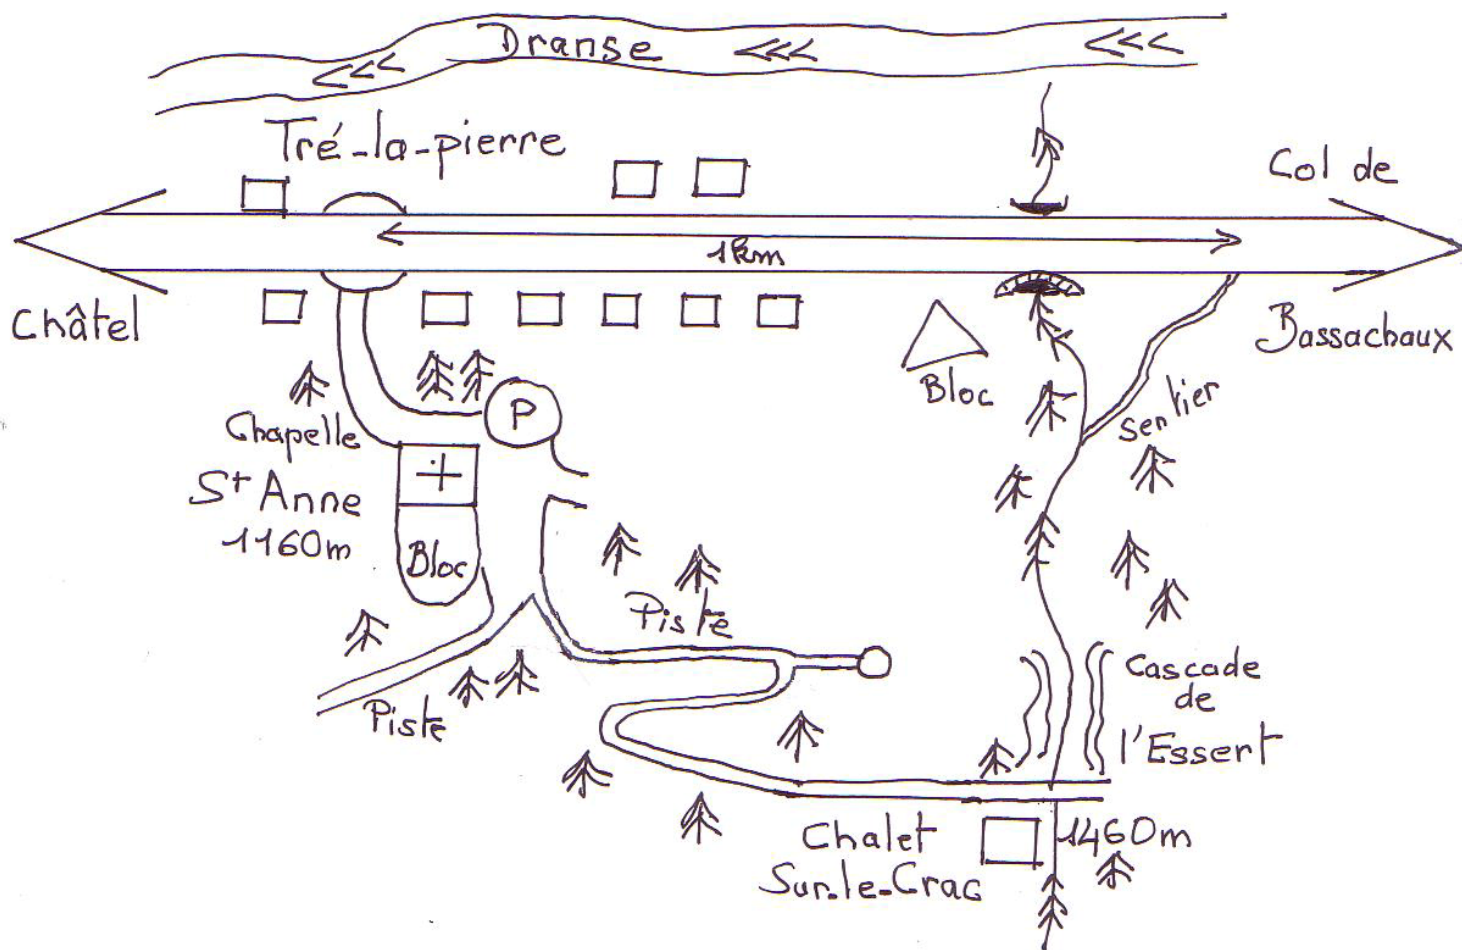 Dranse
Tré-la-pierre
Col de
1km
Châtel
Bassachaux
Bloc
sentier
P
Chapelle
St Anne
1160m
Bloc
Piste
Piste
Cascade
de
l'Essert
Chalet
Sur-le-Crac
1460m